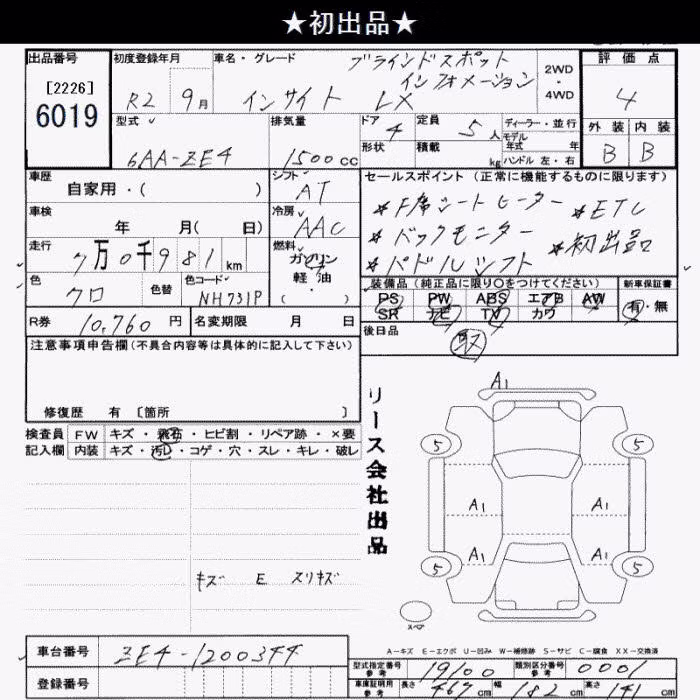 ★初出品★
出品番号
[2226]
6019
初度登録年月
R2 9月
車名・グレード
ブラインドスポット
インフォメーション
インサイト LX
2WD
・
4WD
評価点
4
外装 内装
B B
型式
6AA-ZE4
排気量
1500cc
ドア
4
形状
定員
5人
積載 kg
ディーラー・並行
モデル
年式 年
ハンドル 左・右
車歴
自家用・( )
シフト
AT
車検
年 月( 日)
冷房
AAC
走行
7万0千981km
燃料
ガソリン
軽油
( ・ )
色
クロ
色替
色コード
NH731P
R券
10,760円
名変期限 月 日
セールスポイント(正常に機能するものに限ります)
*F席シートヒーター *ETC
*バックモニター *初出品
*パドルシフト
装備品(純正品に限り○をつけてください)
PS PW ABS エアB AW
SR ナビ TV カワ
新車保証書
有・無
後日品
取
注意事項申告欄(不具合内容等は具体的に記入して下さい)
修復歴 有 〔箇所 〕
検査員 FW キズ・飛石・ヒビ割・リペア跡・×要
記入欄 内装 キズ・汚レ・コゲ・穴・スレ・キレ・破レ
キズ E スリキズ
リース会社出品
A1
5 5
A1 A1
A1 A1
5 5
スペア
A－キズ E－エクボ U－凹み W－補修跡 S－サビ C－腐食 XX－交換済
車台番号
ZE4-1200344
登録番号
型式指定番号
参考
19100
類別区分番号
参考
0001
車庫証明用
参考
長さ 467cm 幅 182cm 高さ 141cm